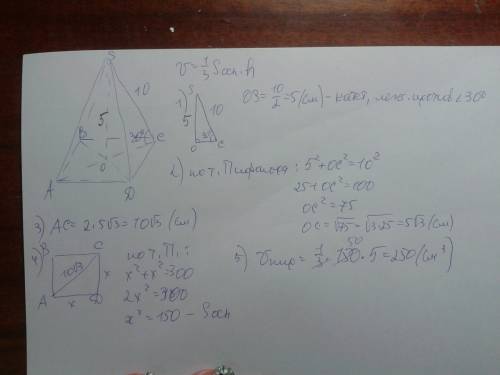 V = 1/3 Sосн · h
S
10
5
B
30°
C
O
A
D
1) S
5
10
30°
O
C
OS = 10/2 = 5 (см) – катет, леж. против < 30°
2) по т. Пифагора: 5² + OC² = 10²
25 + OC² = 100
OC² = 75
OC = √75 = √3·25 = 5√3 (см)
3) AC = 2·5√3 = 10√3 (см)
4) B
C
10√3
x
A
D
x
по т. П.:
x² + x² = 300
2x² = 300
x² = 150 – Sосн
5) Vпир = 1/3 · 150 · 5 = 250 (см³)
50